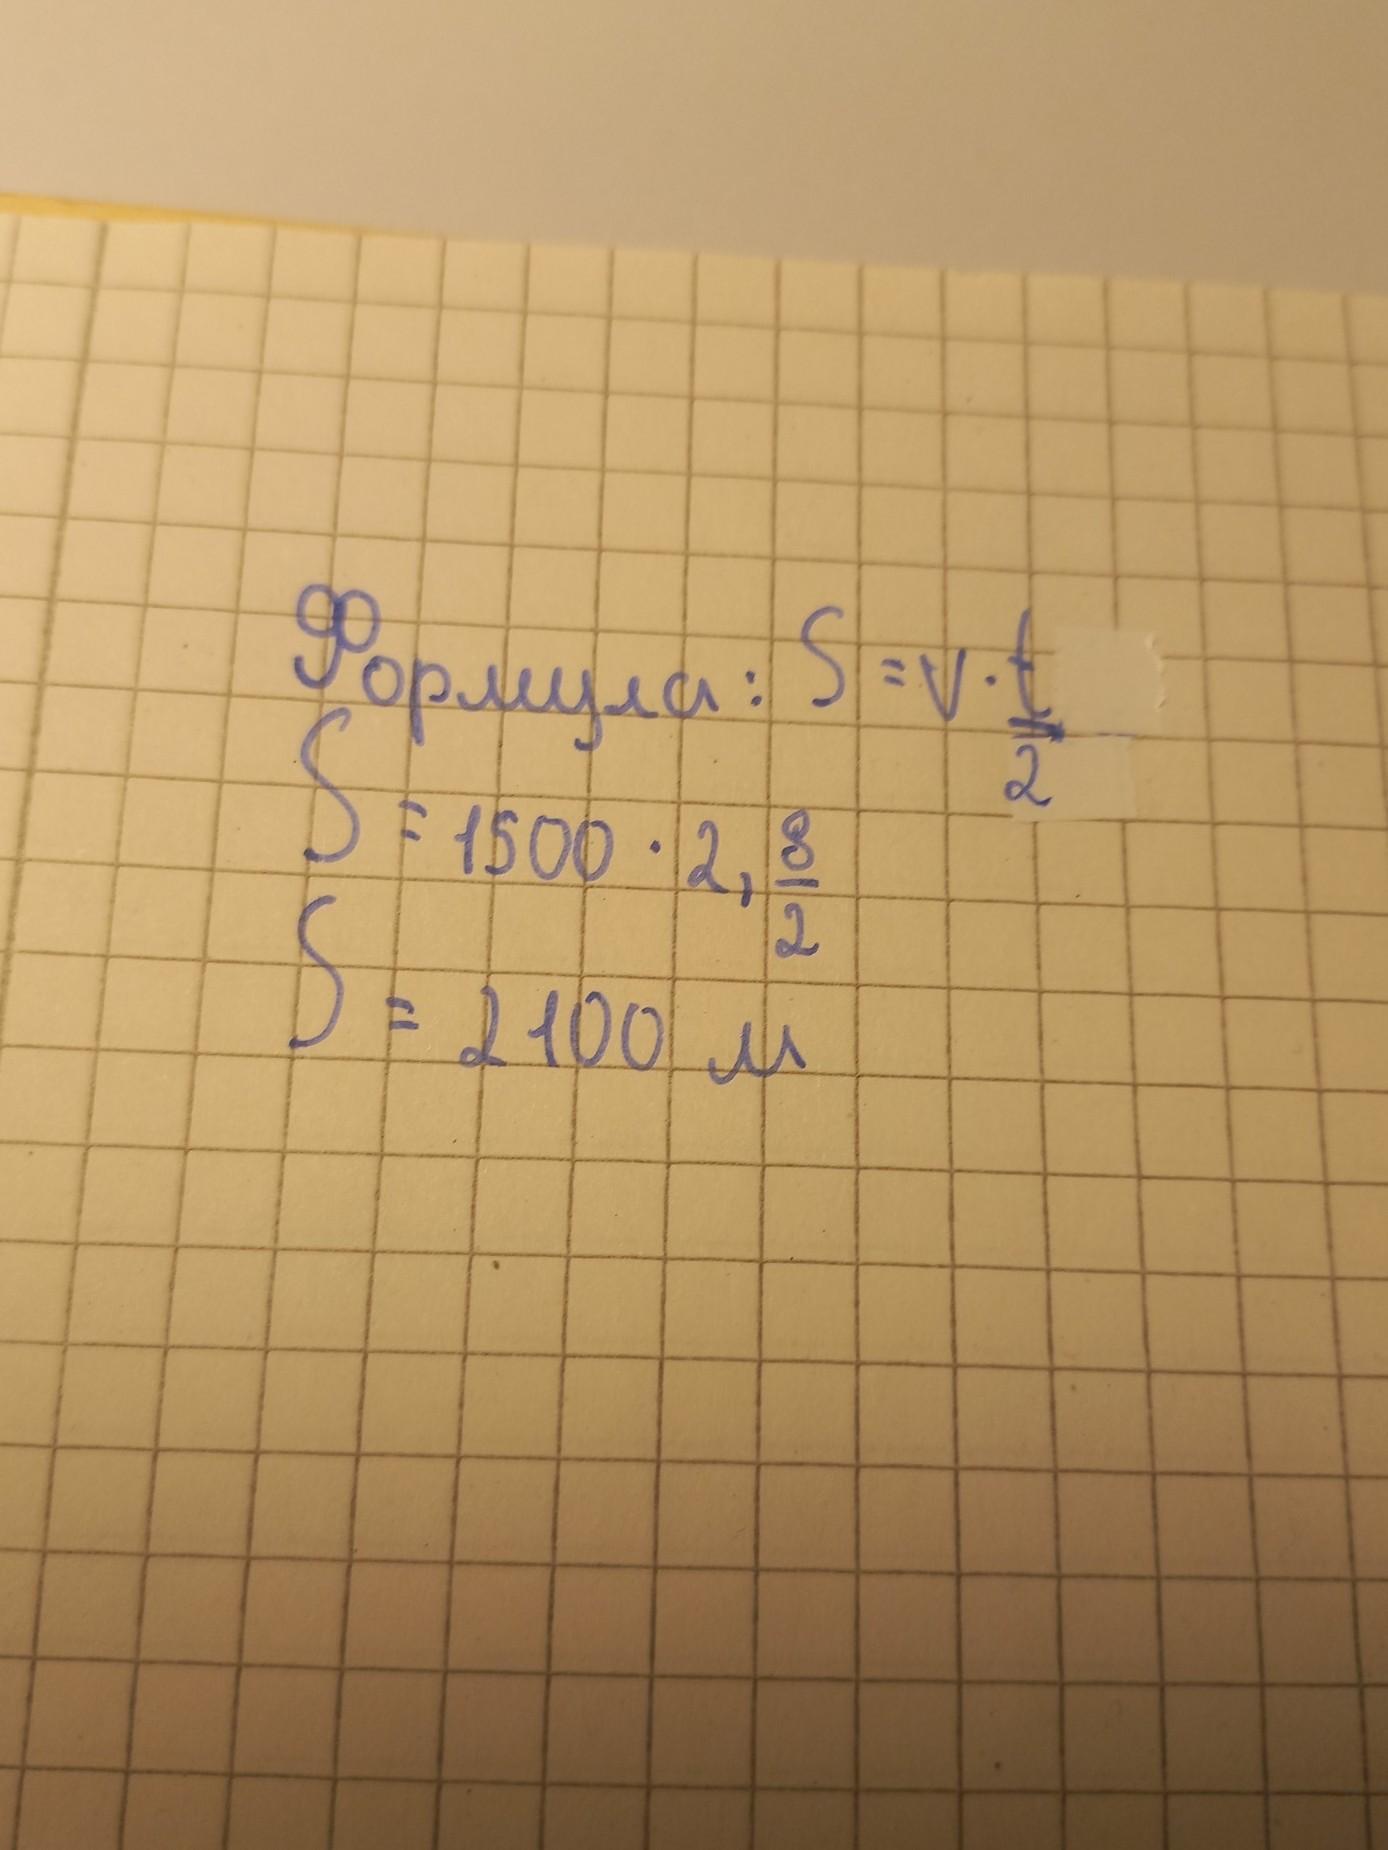 Формула: S = v · t/2
S = 1500 · 2,8/2
S = 2100 м